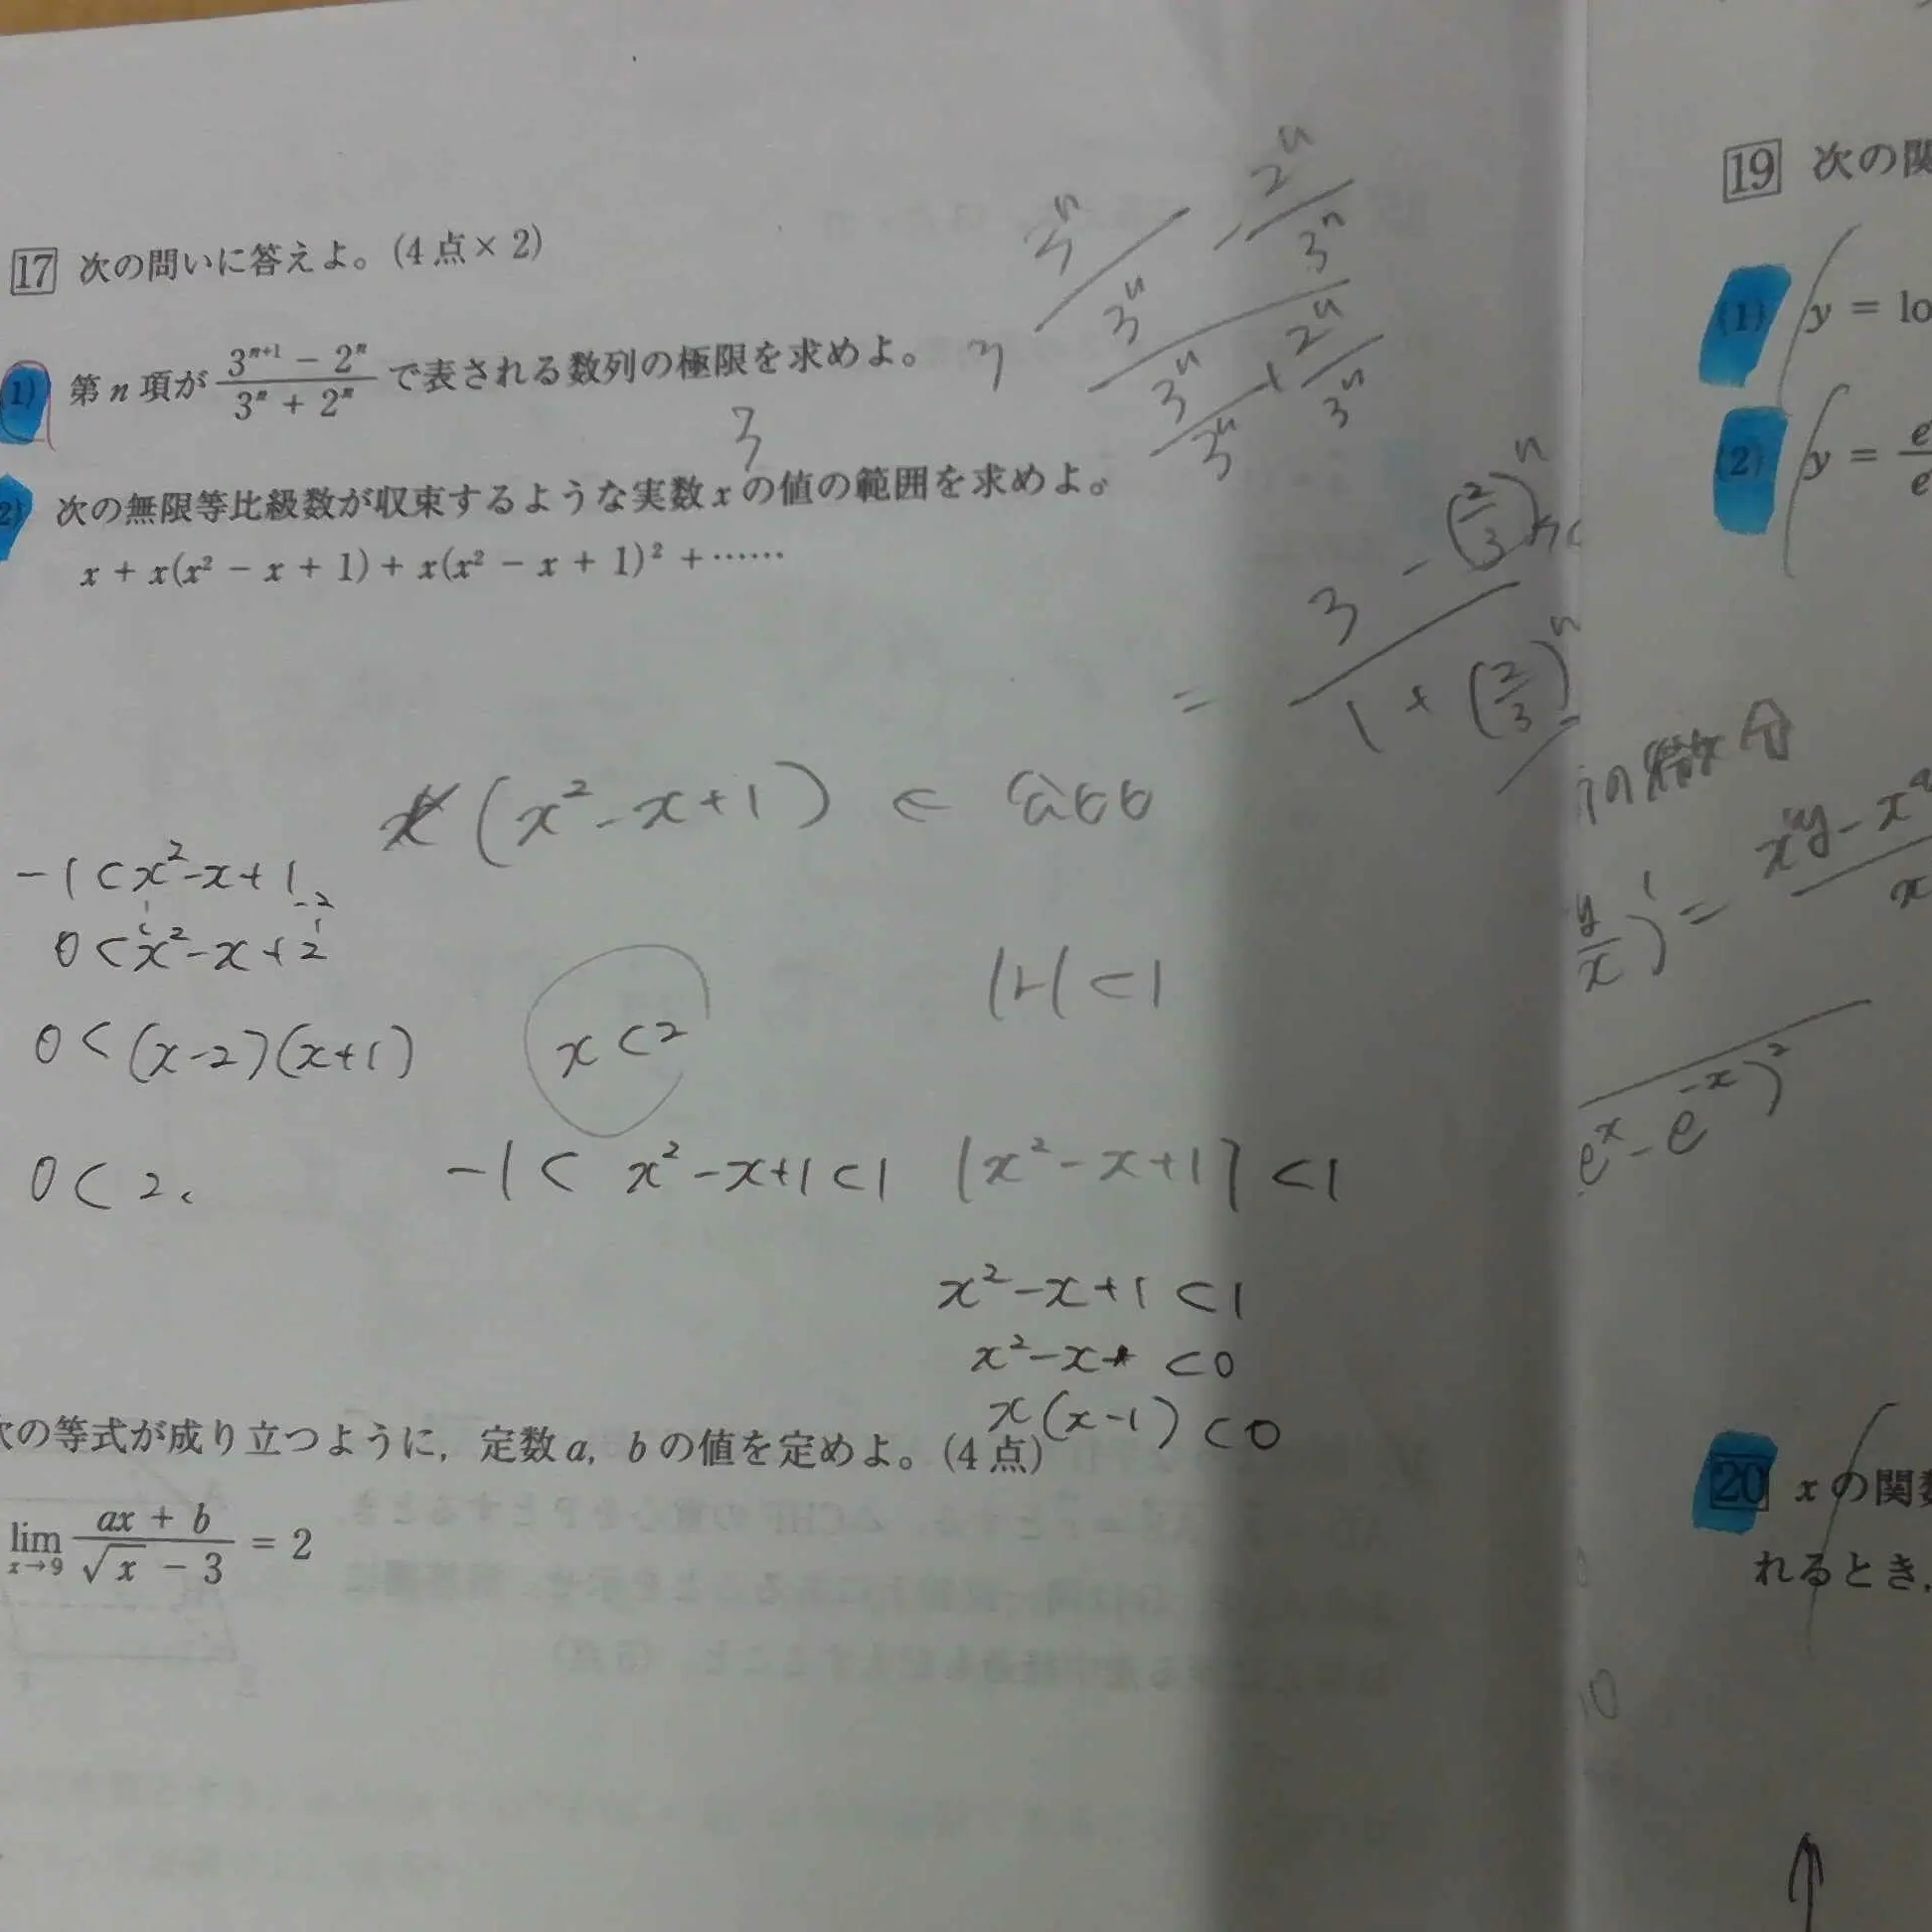 17 次の問いに答えよ。(4点×2)
1) 第n項が (3^{n+1} − 2^n)/(3^n + 2^n) で表される数列の極限を求めよ。 3
3
2) 次の無限等比級数が収束するような実数xの値の範囲を求めよ。
x + x(x² − x + 1) + x(x² − x + 1)² + ……
3^n/3^n − 2^n/3^n
3^n/3^n + 2^n/3^n
= (3 − (2/3)^n)/(1 + (2/3)^n)
(x² − x + 1) <
−1 < x² − x + 1
−2
0 < x² − x + 2
|r| < 1
0 < (x−2)(x+1)
x < 2
0 < 2
−1 < x² − x + 1 < 1
|x² − x + 1| < 1
x² − x + 1 < 1
x² − x < 0
x(x−1) < 0
次の等式が成り立つように, 定数a, bの値を定めよ。(4点)
lim_{x→9} (ax + b)/(√x − 3) = 2
19 次の関
(1) y = lo
(2) y = e/e
の微分
(y/x)' =
e^x − e^{−x})²
20 xの関数
れるとき,
10